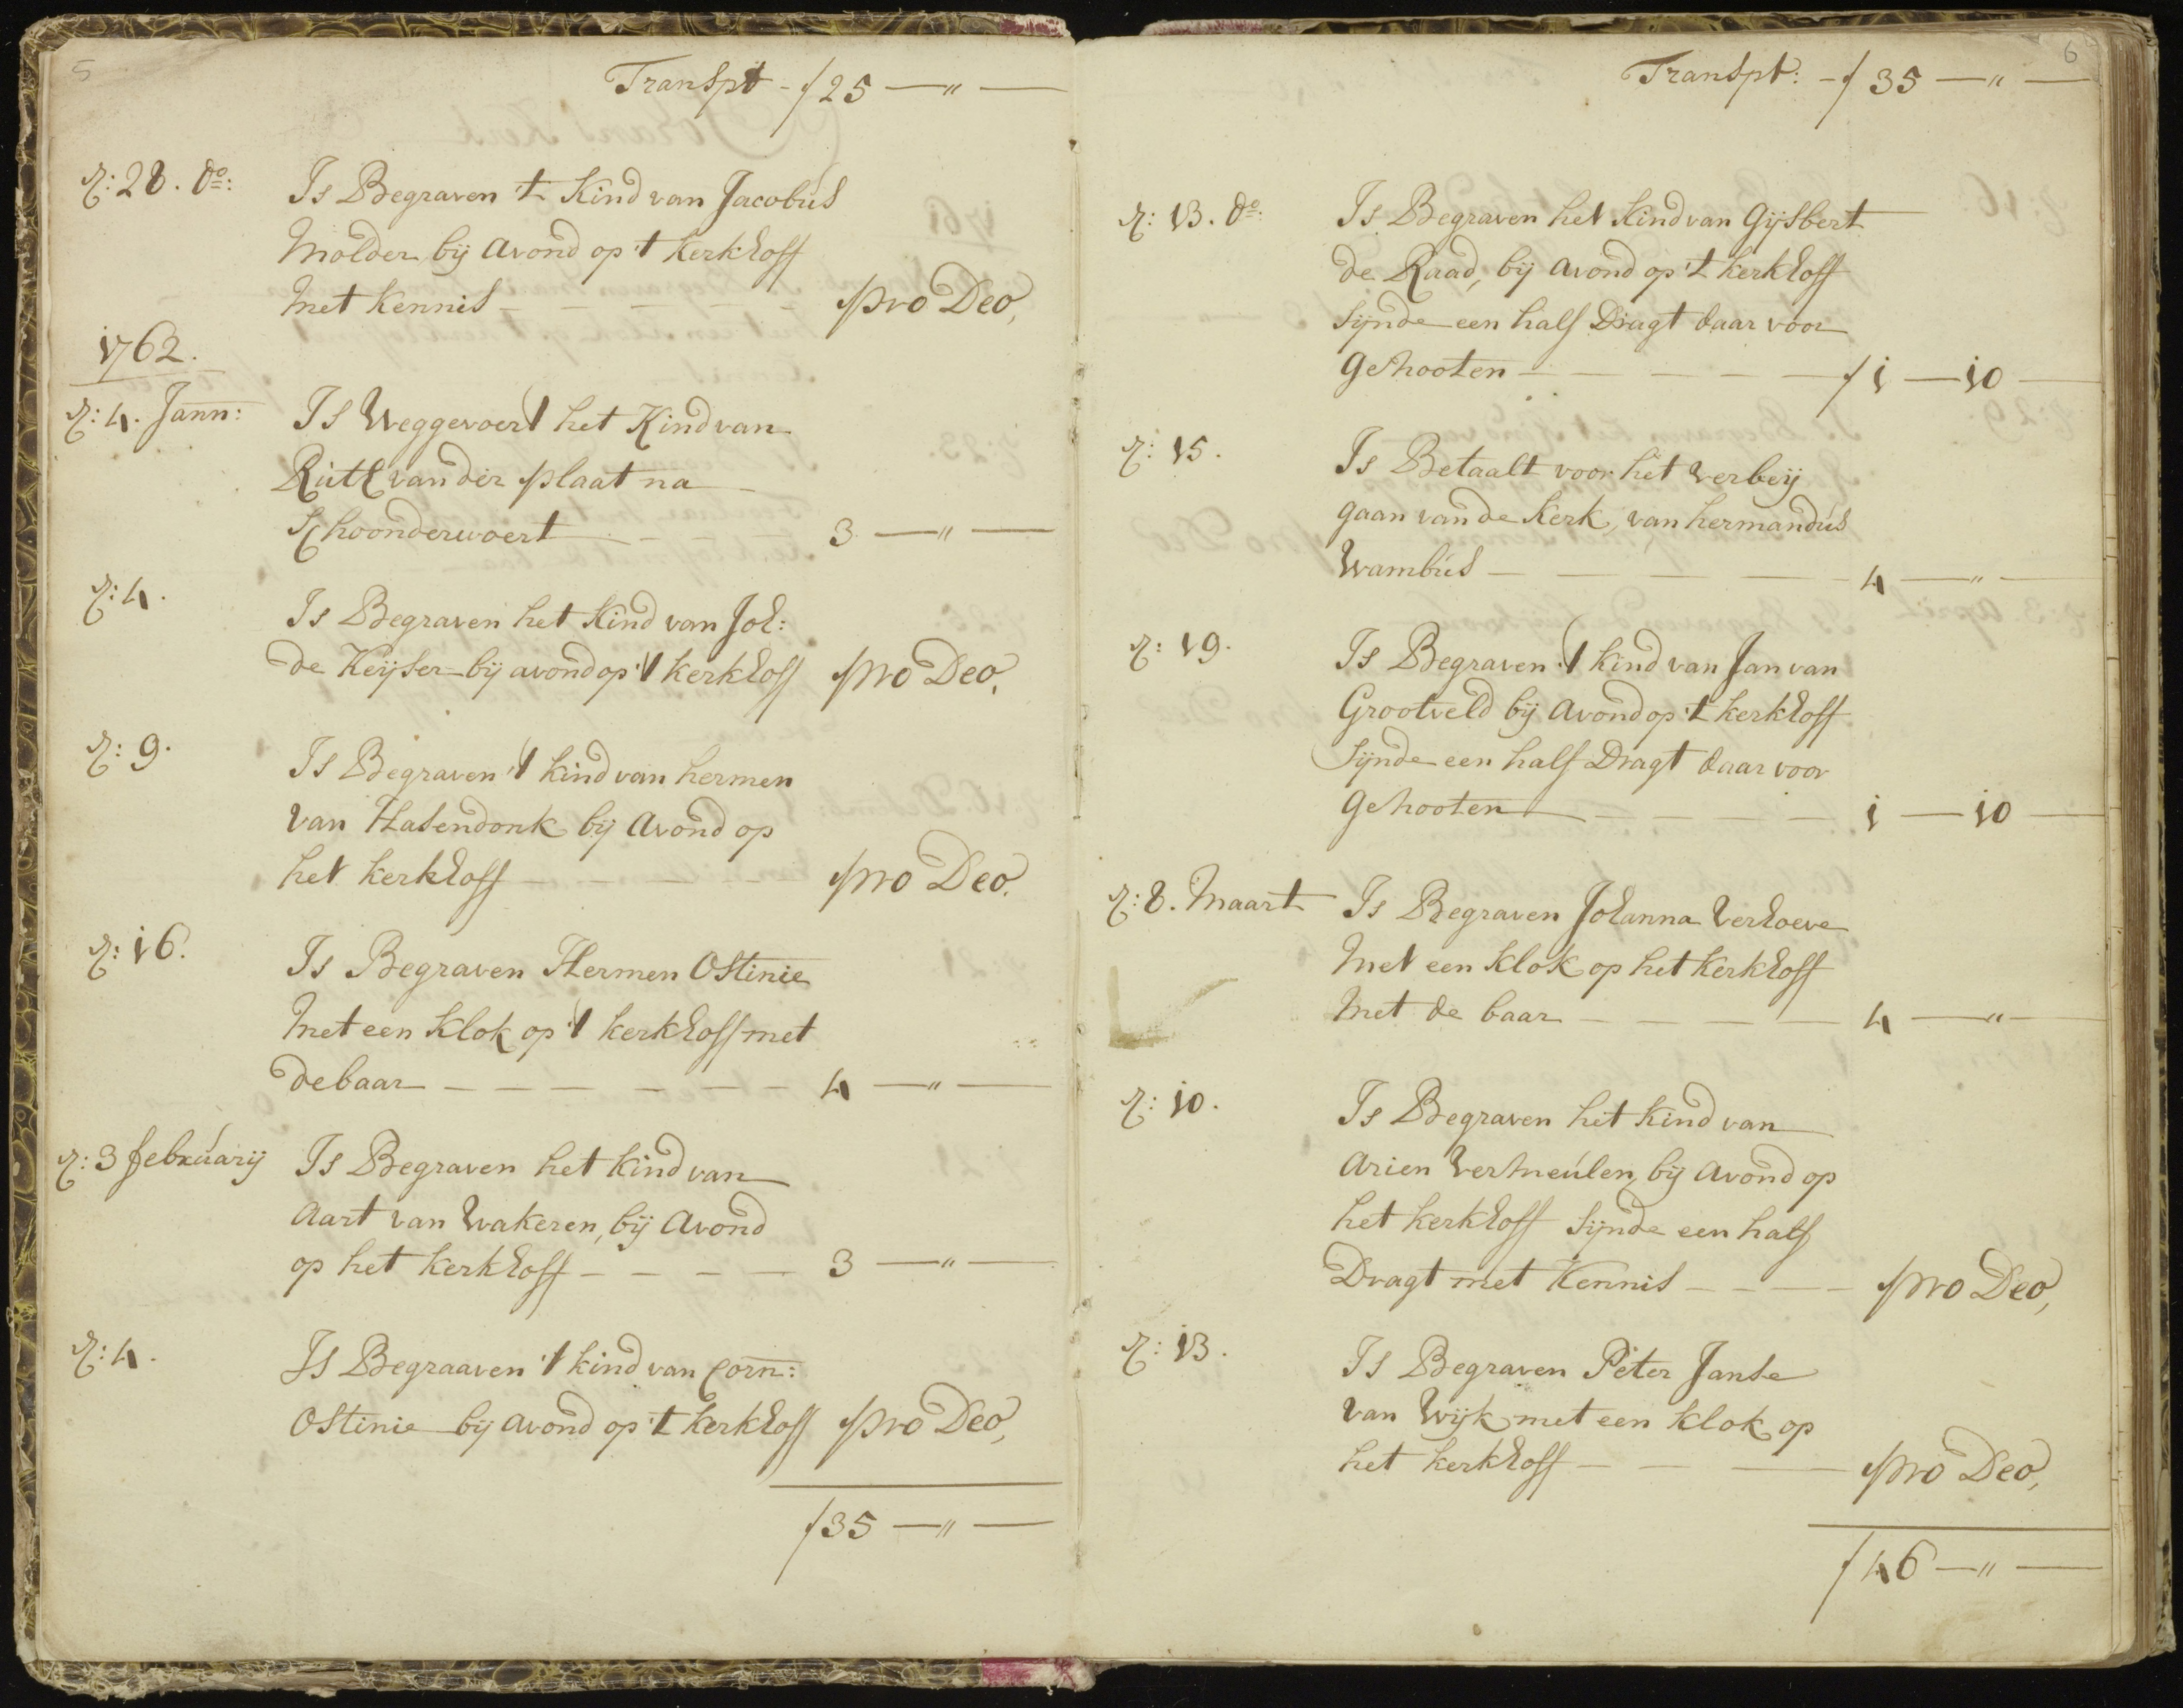 5
Transpt - ƒ 25 — " —
d: 28. do:
Is Begraven 't Kind van Jacobus
Molder bij avond op 't kerkhoff
met kennis - - - - pro Deo,
1762.
d: 4. Jann:
Is Weggevoert het Kind van
Rutt van der plaat na
Schoonderwoert - - - - 3 — " —
d: 4.
Is Begraven het Kind van Joh:
de Keijser bij avond op 't kerkhoff pro Deo,
d: 9.
Is Begraven 't kind van hermen
van Hasendonk bij avond op
het kerkhoff - - - - - pro Deo.
d: 16.
Is Begraven Hermen Ostinie
met een klok op 't kerkhoff met
de baar - - - - - - - 4 — " —
d: 3 februarij
Is Begraven het kind van
Aart van Wakeren, bij avond
op het kerkhoff - - - - 3 — " —
d: 4.
Is Begraaven 't kind van Corn:
Ostinie bij avond op 't kerkhoff pro Deo,
ƒ 35 — " —
6
Transpt: - ƒ 35 — " —
d: 13. do:
Is Begraven het kind van Gijsbert
de Raad, bij avond op 't kerkhoff
sijnde een half Dragt daar voor
genooten - - - - - ƒ 1 — 10 —
d: 15.
Is Betaalt voor het verbeij
gaan van de Kerk, van hermandus
Wambus - - - - 4 — " —
d: 19.
Is Begraven 't kind van Jan van
Grootveld bij avond op 't kerkhoff
sijnde een half Dragt daar voor
genooten - - - - - 1 — 10 —
d: 8. Maart
Is Begraven Johanna Verhoeve
met een klok op het kerkhoff
met de baar - - - - - 4 — " —
d: 10.
Is Begraven het kind van
Arien Vermeulen, bij avond op
het kerkhoff sijnde een half
Dragt met kennis - - - - pro Deo,
d: 13.
Is Begraven Peter Janse
van Wijk met een klok op
het kerkhoff - - - pro Deo,
ƒ 46 — " —